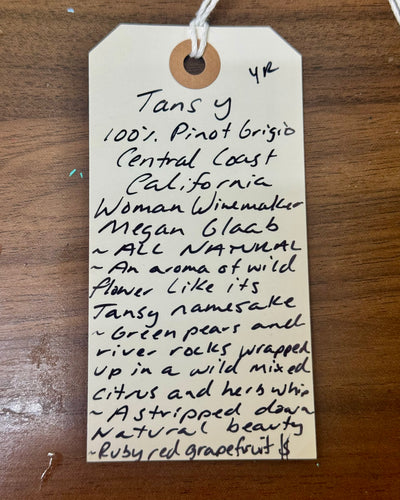 YR
Tansy
100% Pinot Grigio
Central Coast
California
Woman Winemaker
Megan Glaab
~ ALL NATURAL
~ An aroma of wild
flower like its
Tansy namesake
~ Green pears and
river rocks wrapped
up in a wild mixed
citrus and herb whip
~ A stripped down
Natural beauty
~Ruby red grapefruit